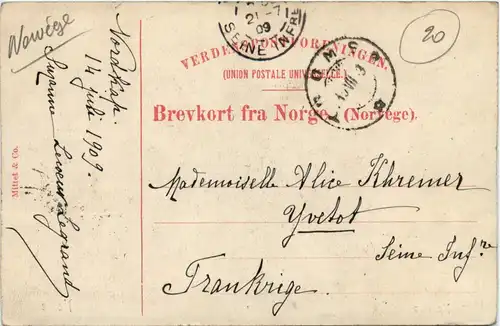 Norvège
20
Nordkap.
14 juli 1909.
Suzanne Legrand
Mittet & Co.
21-7
09
SEINE INFRE
VERDENSPOSTFORENINGEN.
(UNION POSTALE UNIVERSELLE.)
TROMSØ
Brevkort fra Norge. (Norvège).
Mademoiselle Alice Khremer
Yvetot
Seine Infre
Frankrige.